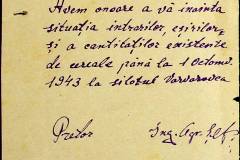 Avem onoare a vă înainta
situația intrărilor, eșirilor
și a cantităților existente
de cereale până la 1 Octomv.
1943 la silozul Varvarovca
Pretor Ing. Agr.